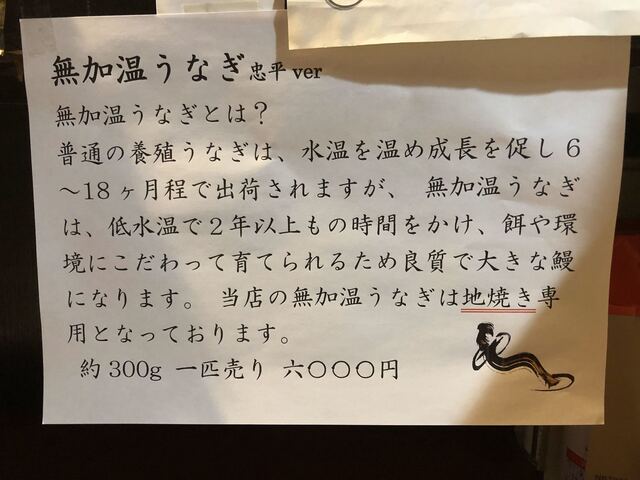 無加温うなぎ忠平 ver
無加温うなぎとは？
普通の養殖うなぎは、水温を温め成長を促し６
～18ヶ月程で出荷されますが、 無加温うなぎ
は、低水温で２年以上もの時間をかけ、餌や環
境にこだわって育てられるため良質で大きな鰻
になります。 当店の無加温うなぎは地焼き専
用となっております。
約300g 一匹売り 六〇〇〇円